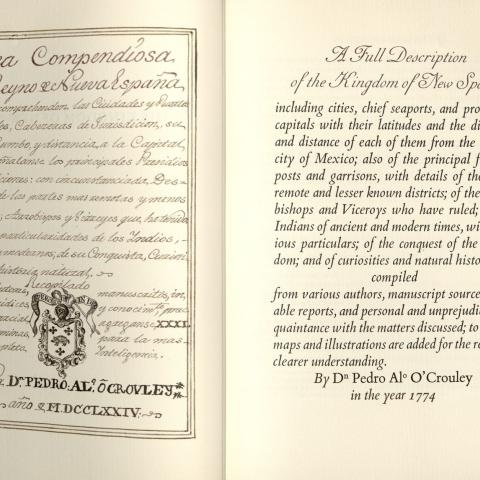 Compendiosa
Reyno de Nueva España
comprehenden las Ciudades y
Cabezeras de Jurisdicion, su
y distancia, a la Capital
los principales Presidios
con circunstanciada, Des-
de los partes mas remotas y menos
Arzobispos y Virreyes que ha tenido
particularidades de los Indios,
modernos, de su Conquista,
historia natural.
Recopilado
manuscritos, in
y conocimto.
XXXI.
para la mas
Inteligencia.
Dn. PEDRO. ALo. Ō CROULEY
año de MDCCLXXIV.
A Full Description
of the Kingdom of New Spa
including cities, chief seaports, and pro
capitals with their latitudes and the di
and distance of each of them from the
city of Mexico; also of the principal f
posts and garrisons, with details of the
remote and lesser known districts; of the
bishops and Viceroys who have ruled;
Indians of ancient and modern times, wi
ious particulars; of the conquest of the
dom; and of curiosities and natural histo
compiled
from various authors, manuscript source
able reports, and personal and unprejudi
quaintance with the matters discussed; to
maps and illustrations are added for the re
clearer understanding.
By Dn Pedro Alo O'Crouley
in the year 1774